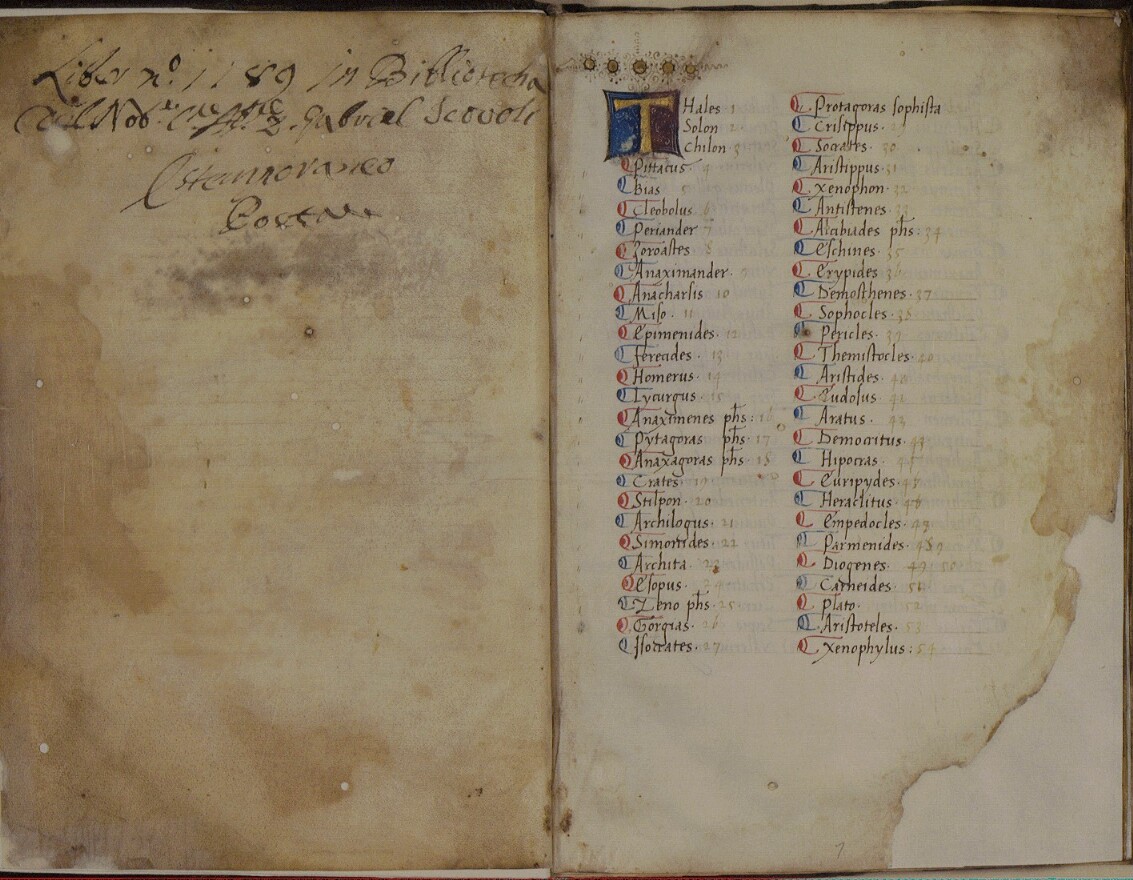 Liber n.º 1189 in Bibliotecha
Del Nob. Gabriel
THales 1
Solon 2
Chilon 3
Pittacus 4
Bias 5
Cleobolus 6
Periander 7
Zoroastes 8
Anaximander. 9
Anacharsis 10
Miso. 11
Epimenides. 12
ferecides. 13
Homerus. 14
Lycurgus. 15
Anaximenes phs: 16
Pytagoras phs. 17
Anaxagoras phs. 18
Crates. 19
Stilpon. 20
Archilogus. 21
Simonides. 22
Archita. 23
Esopus. 24
Zeno phs. 25
Gorgias. 26
Isocrates. 27
Protagoras sophista
Crisippus.
Socrates. 30
Aristippus. 31
Xenophon. 32
Antistenes.
Alcibiades phs: 34
Eschines. 35
Erypides 36
Demosthenes. 37
Sophocles. 38
Pericles. 39
Themistocles. 40
Aristides.
Eudosus.
Aratus. 43
Democritus.
Hipocras.
Euripydes.
Heraclitus.
Empedocles.
Parmenides.
Diogenes.
Carneides. 51
Plato. 52
Aristoteles. 53
Xenophylus: 54